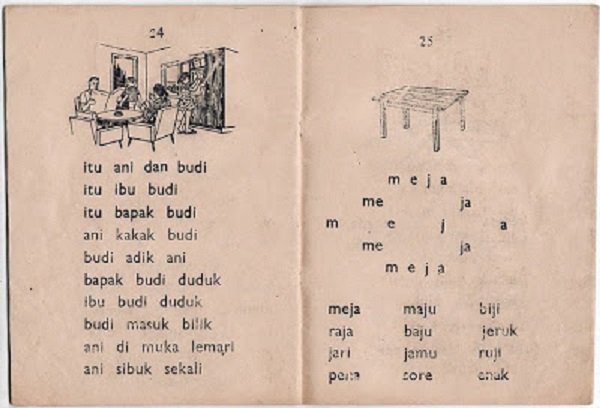 24
itu ani dan budi
itu ibu budi
itu bapak budi
ani kakak budi
budi adik ani
bapak budi duduk
ibu budi duduk
budi masuk bilik
ani di muka lemari
ani sibuk sekali
25
m e j a
me ja
m e j a
me ja
m e j a
meja maju biji
raja baju jeruk
jari jamu ruji
pena sore enak